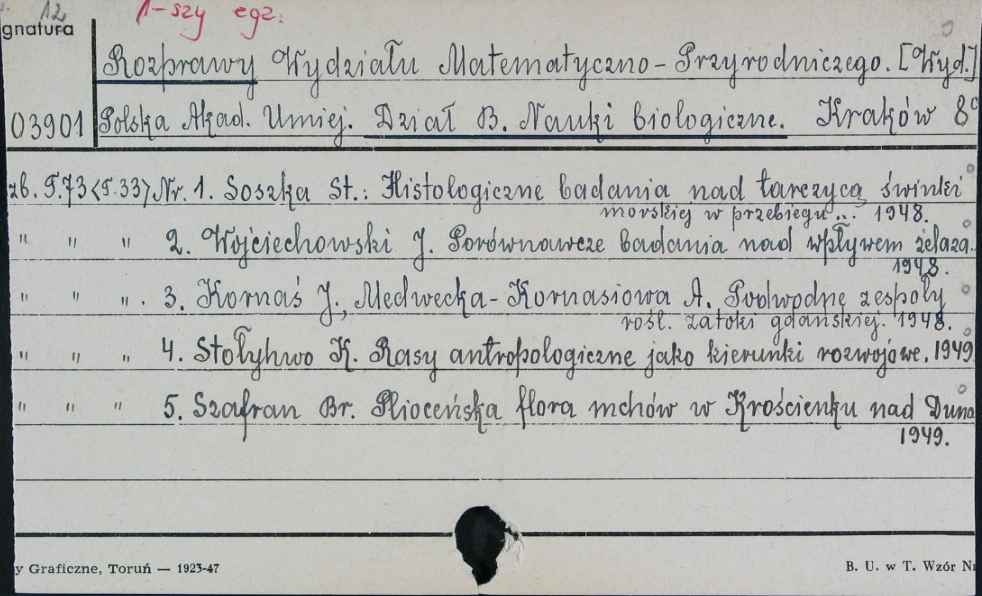 12 1-szy egz.
gnatura
Rozprawy Wydziału Matematyczno-Przyrodniczego. [Wyd.]
03901 Polska Akad. Umiej. Dział B. Nauki biologiczne. Kraków 8°
zb. T.73<T.33> Nr. 1. Soszka St.: Histologiczne badania nad tarczycą świnki
morskiej w przebiegu... 1948.
" " " 2. Wojciechowski J. Porównawcze badania nad wpływem żelaza..
1948.
" " " . 3. Kornaś J., Medwecka-Kornasiowa A. Podwodne zespoły
rośl. zatoki gdańskiej. 1948.
" " " 4. Stołyhwo K. Rasy antropologiczne jako kierunki rozwojowe. 1949
" " " 5. Szafran Br. Plioceńska flora mchów w Krościenku nad Duna
1949.
y Graficzne, Toruń — 1923-47 B. U. w T. Wzór Nr